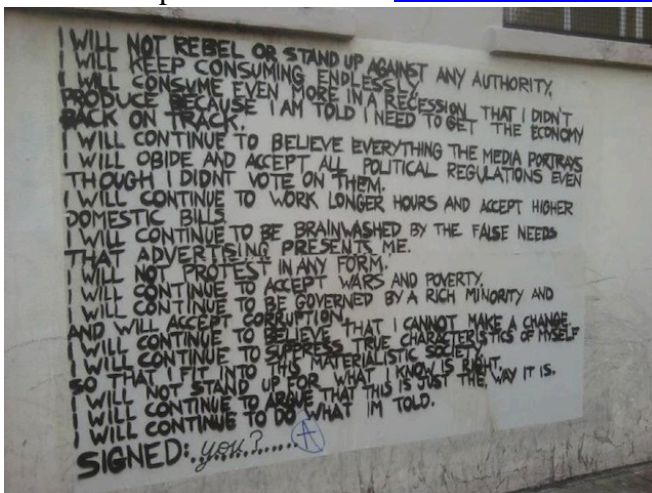 I WILL NOT REBEL OR STAND UP AGAINST ANY AUTHORITY.
I WILL KEEP CONSUMING ENDLESSLY.
I WILL CONSUME EVEN MORE IN A RECESSION THAT I DIDN'T
PRODUCE BECAUSE I AM TOLD I NEED TO GET THE ECONOMY
BACK ON TRACK.
I WILL CONTINUE TO BELIEVE EVERYTHING THE MEDIA PORTRAYS
I WILL OBIDE AND ACCEPT ALL POLITICAL REGULATIONS EVEN
THOUGH I DIDNT VOTE ON THEM.
I WILL CONTINUE TO WORK LONGER HOURS AND ACCEPT HIGHER
DOMESTIC BILLS.
I WILL CONTINUE TO BE BRAINWASHED BY THE FALSE NEEDS
THAT ADVERTISING PRESENTS ME.
I WILL NOT PROTEST IN ANY FORM.
I WILL CONTINUE TO ACCEPT WARS AND POVERTY.
I WILL CONTINUE TO BE GOVERNED BY A RICH MINORITY AND
AND WILL ACCEPT CORRUPTION.
I WILL CONTINUE TO BELIEVE THAT I CANNOT MAKE A CHANGE
I WILL CONTINUE TO SUPRESS TRUE CHARACTERISTICS OF MYSELF
SO THAT I FIT INTO THIS MATERIALISTIC SOCIETY
I WILL NOT STAND UP FOR WHAT I KNOW IS RIGHT.
I WILL CONTINUE TO ARGUE THAT THIS IS JUST THE WAY IT IS.
I WILL CONTINUE TO DO WHAT IM TOLD.
SIGNED: you? A